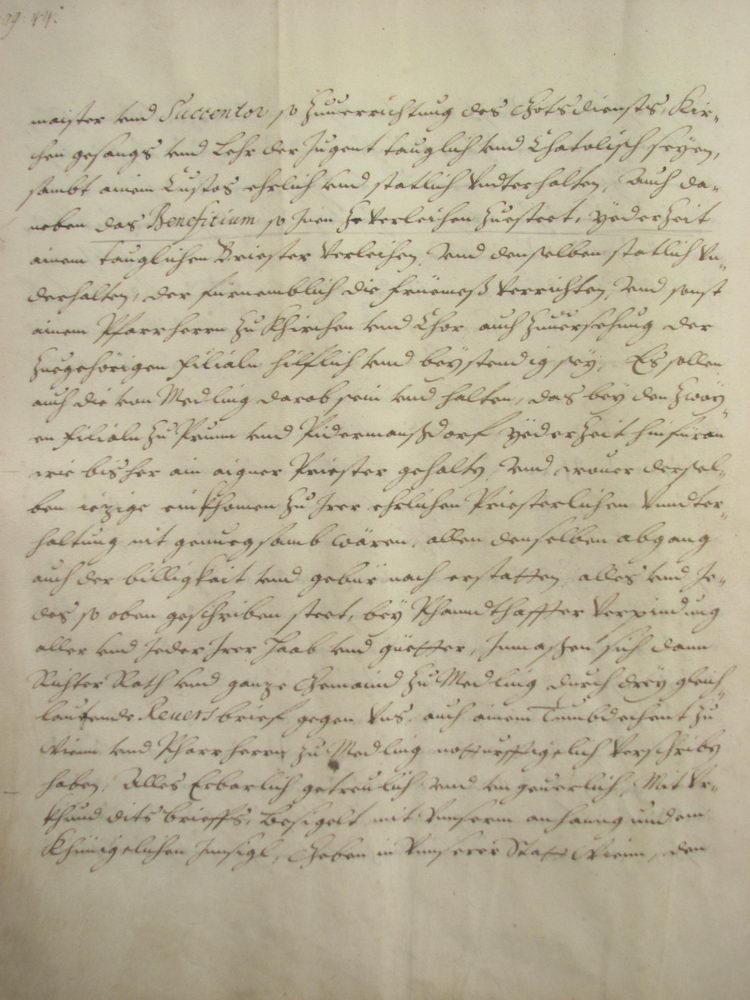 pag: 44.
maister vnd Succentor so zuuerrichtung des Gotsdiensts, Kir-
chen gesangs vnd Lehr der Jugent tauglich vnd Chatolisch seyen,
sambt ainem Custos ehrlich vnd statlich vndterhalten, Auch da-
neben das Beneficium so Jnen zeverleihen zuesteet, yederzeit
ainem tauglichen Briester verleihen, vnd denselben statlich vn-
derhalten, der fürnemblich die fruemeß verrichten, vnd sonst
ainem Pfarrherrn zu Khirchen vnd Chor auch zuuersehung der
zuegehörigen filialn hilflich vnd beystendig sey, Es sollen
auch die von Medling darob sein vnd halten, das bey den zway-
en filialn zu Prunn vnd Pidermanßdorf yederzeit hinfüran
wie bisher ain aigner Priester gehalten, vnd wouer dersel-
ben iezige einkhomen zu Jrer ehrlichen Priesterlichen vnndter-
haltung nit genuegsamb wären, allen denselben abgang
auch der billigkait vnd gebür nach erstatten, alles vnd Je-
des so oben geschriben steet, bey Phanndthaffter verpindung
aller vnd Jeder Jrer Haab vnd güetter, Jnmaßen sich dann
Richter Rath vnd ganze Gemaind zu Medling durch drey gleich
lauttende Reuersbrief gegen vns, auch ainem Tumbdechant zu
Wienn vnd Pharrherrn zu Medling notturfftigelich verschriben
haben, Alles Erbarlich getreulich vnd vngeuerlich, Mit Vr-
khund dits brieffs, Besigelt mit vnnserm anhanngundem
Khünigelichen Jnnsigl, Geben in vnnserer Statt Wienn, den